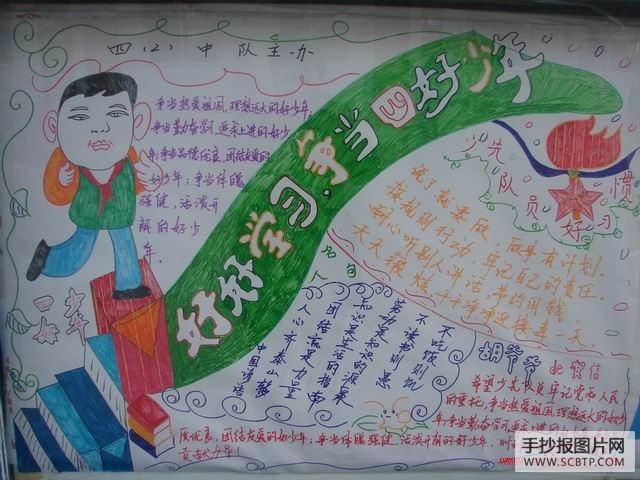 四（2）中队主办
争当热爱祖国、理想远大的好少年；
争当勤奋学习、追求上进的好少
年；争当品德优良、团结友爱的
好少年；争当体魄
强健、活泼开
朗的好少
年。
好好学习，争当四好少年
少先
队员
好习
惯
说了就要做，做事有计划。
按规则行动，牢记自己的责任。
耐心听别人讲话，节约用钱
天天锻炼
干干净净迎接每一天。
四好
少年
名句
不吃饭则饥
不读书则愚
劳动是知识的源泉
知识是生活的指南
团结就是力量
人心齐泰山移
中国谚语
胡爷爷的贺信
希望少先队员牢记党和人民
的重托，争当热爱祖国、理想远大的好少
年；争当勤奋学习、追求上进的
德优良、团结友爱的好少年；争当体魄强健、活泼开朗的好少年，
贡献力量！
手抄报图片网
WWW.SCBTP.COM